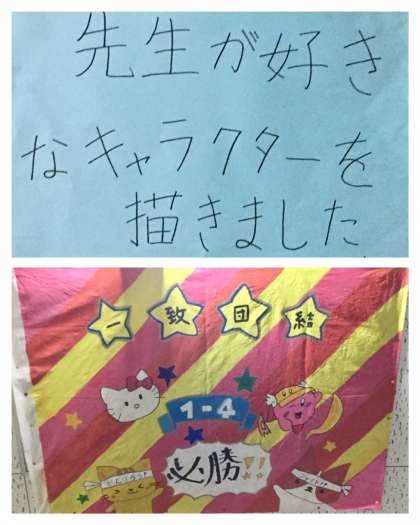 先生が好き
なキャラクターを
描きました
一致団結
1-4
必勝!!